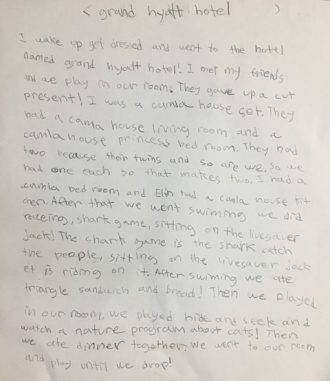 < grand hyatt hotel >
I wake up get dressed and went to the hotel
named grand hyatt hotel! I met my friends
and we play in our room. They gave up a cut
present! I was a camla house set. They
had a camla house living room and a
camla house princess bed room. They had
two because their twins and so are we. So we
had one each so that makes two. I had a
camla bed room and Elin had a camla house kit
chen. After that we went swiming we did
raceing, shark game, sitting on the livesaver
jack! The shark game is the shark catch
the people, sitting on the livesaver jack
et is riding on it. After swiming we ate
triangle sandwich and bread! Then we played
in our room, we played hide and seek and
watch a nature program about cats! Then
we ate dinner together. We went to our room
and play until we drop!